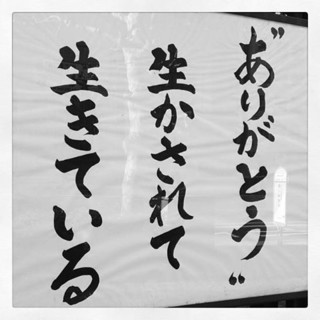 〝ありがとう〟
生かされて
生きている